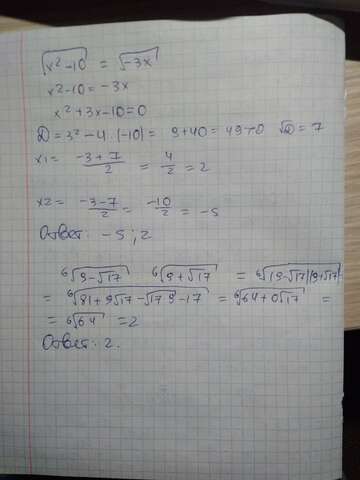 √(x²-10) = √(-3x)
x²-10 = -3x
x²+3x-10=0
D = 3²-4·(-10) = 9+40 = 49>0 √D = 7
x1 = (-3+7)/2 = 4/2 = 2
x2 = (-3-7)/2 = -10/2 = -5
Ответ: -5; 2
⁶√(9-√17) ⁶√(9+√17) = ⁶√((9-√17)(9+√17)) =
= ⁶√(81+9√17-√17 9-17) = ⁶√(64+0√17) =
= ⁶√64 = 2
Ответ: 2.